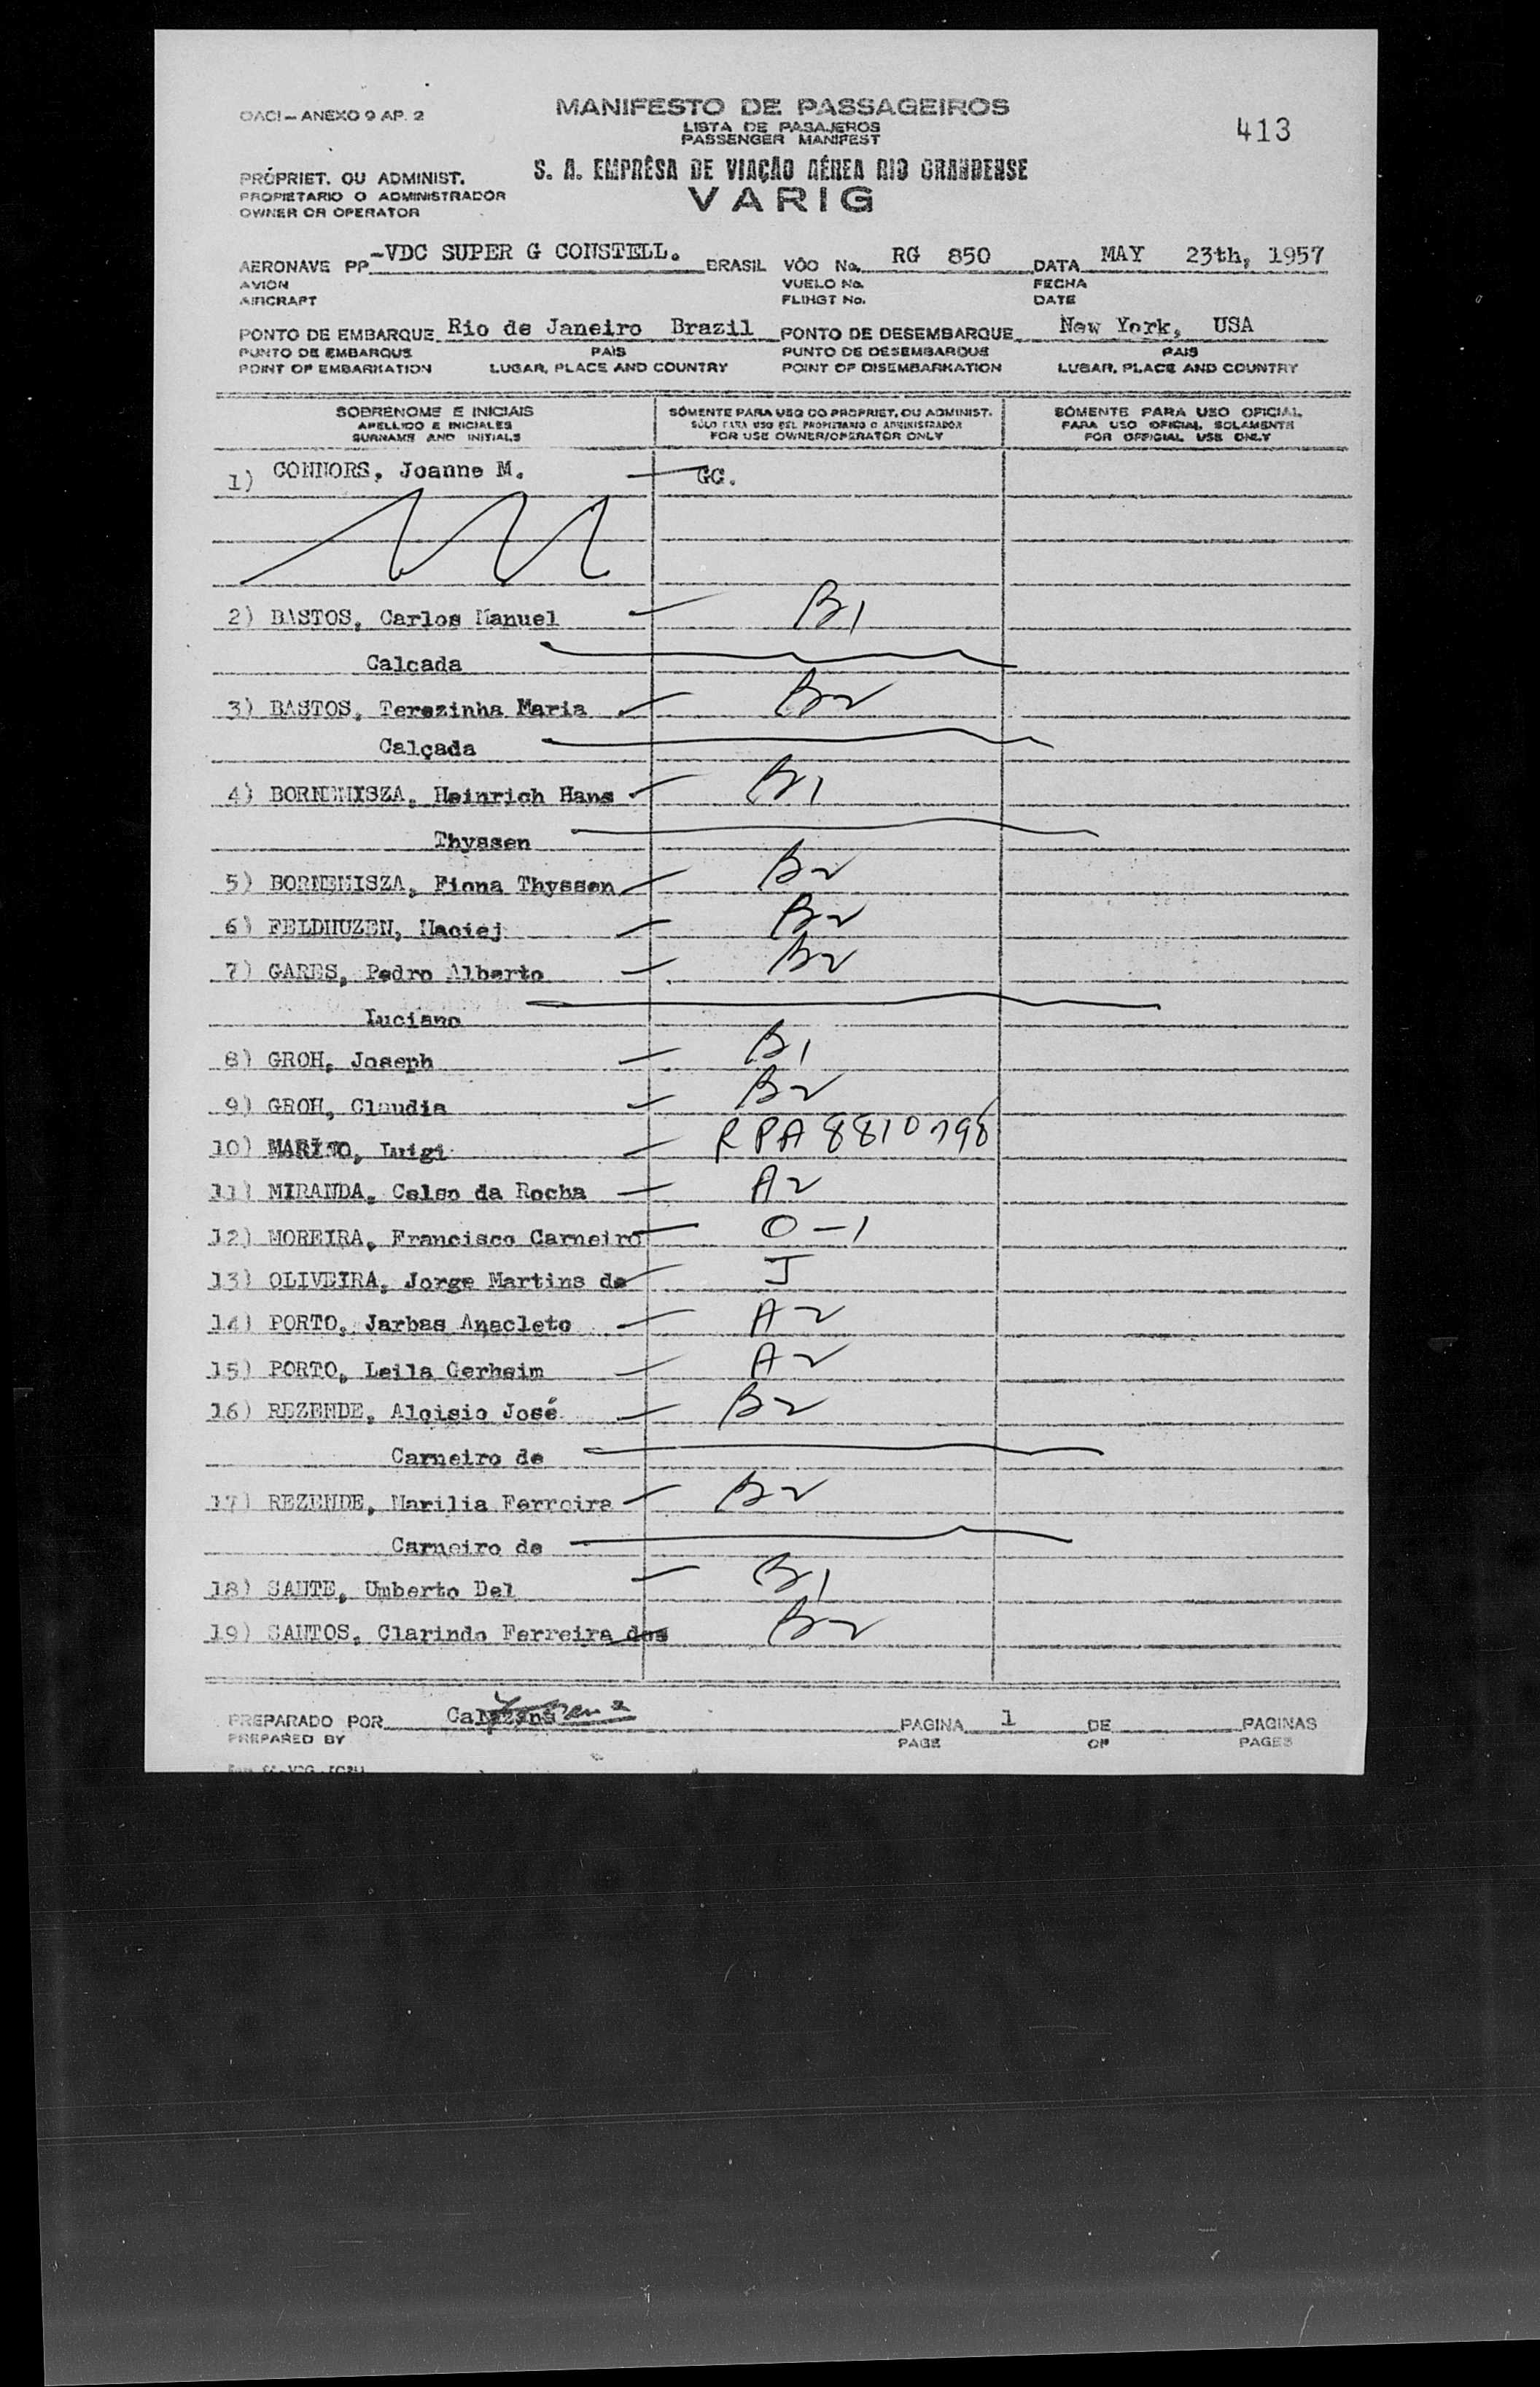 OACI - ANEXO 9 AP. 2
MANIFESTO DE PASSAGEIROS
LISTA DE PASAJEROS
PASSENGER MANIFEST
413
S. A. EMPRÊSA DE VIAÇÃO AÉREA RIO GRANDENSE
VARIG
PRÓPRIET. OU ADMINIST.
PROPIETARIO O ADMINISTRADOR
OWNER OR OPERATOR
AERONAVE PP -VDC SUPER G CONSTELL. BRASIL VÔO No. RG 850 DATA MAY 23th, 1957
AVION VUELO No. FECHA
AIRCRAFT FLINGT No. DATE
PONTO DE EMBARQUE Rio de Janeiro Brazil PONTO DE DESEMBARQUE New York, USA
PUNTO DE EMBARQUE PAÍS PUNTO DE DESEMBARQUE PAIS
POINT OF EMBARKATION LUGAR, PLACE AND COUNTRY POINT OF DISEMBARKATION LUGAR, PLACE AND COUNTRY
SOBRENOME E INICIAIS SÓMENTE PARA USO DO PROPRIET. OU ADMINIST. SÓMENTE PARA USO OFICIAL
APELLIDO E INICIALES SÓLO PARA USO DEL PROPIETARIO O ADMINISTRADOR PARA USO OFICIAL SOLAMENTE
SURNAME AND INITIALS FOR USE OWNER/OPERATOR ONLY FOR OFFICIAL USE ONLY
1) CONNORS, Joanne M. GC.
2) BASTOS, Carlos Manuel B1
Calcada
3) BASTOS, Terezinha Maria B2
Calçada
4) BORNEMISZA, Heinrich Hans B1
Thyssen
5) BORNEMISZA, Fiona Thyssen B2
6) FELDHUZEN, Maciej B2
7) GARES, Pedro Alberto B2
Luciano
8) GROH, Joseph B1
9) GROH, Claudia B2
10) MARINO, Luigi RPA 8810798
11) MIRANDA, Celso da Rocha A2
12) MOREIRA, Francisco Carneiro O-1
13) OLIVEIRA, Jorge Martins de J
14) PORTO, Jarbas Anacleto A2
15) PORTO, Leila Gerheim A2
16) REZENDE, Aloisio José B2
Carneiro de
17) REZENDE, Marilia Ferreira B2
Carneiro de
18) SANTE, Umberto Del B1
19) SANTOS, Clarindo Ferreira dos B2
PREPARADO POR PAGINA 1 DE PAGINAS
PREPARED BY PAGE OF PAGES